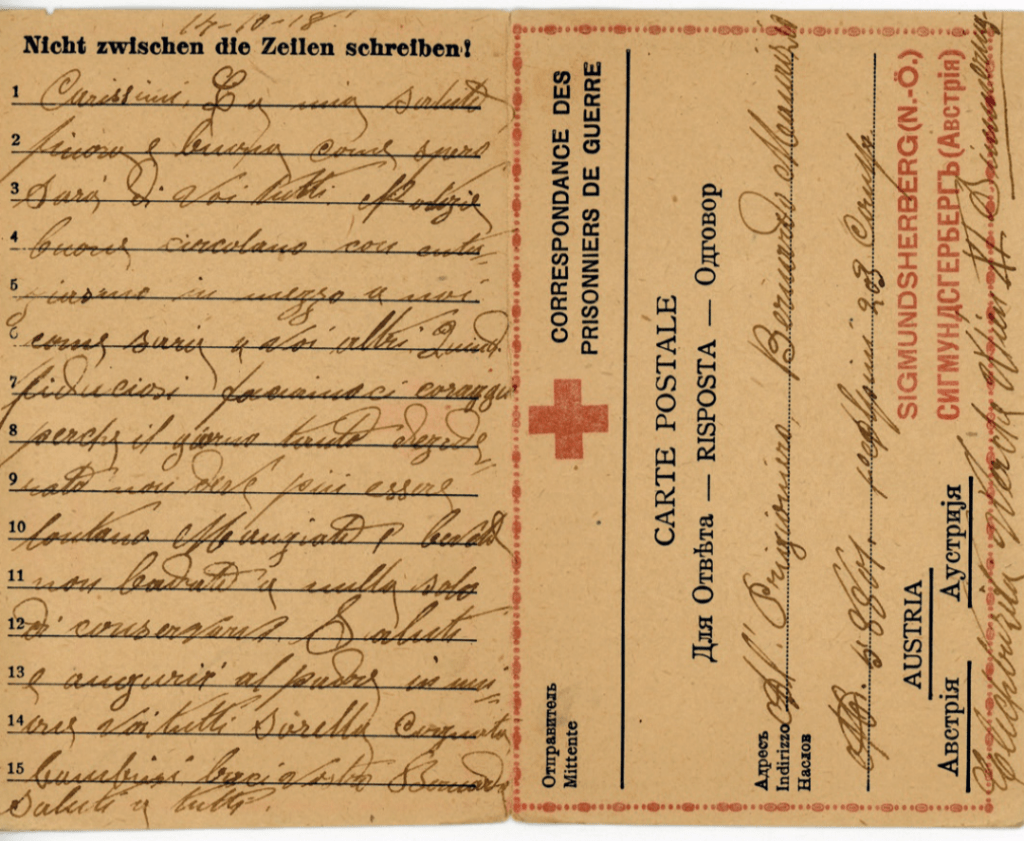 14-10-18
Nicht zwischen die Zeilen schreiben!
1 Carissimi, La mia salute
2 finora è buona come spero
3 sarà di voi tutti. Notizie
4 buone circolano con entu=
5 in mezzo a noi
6 come sarà a voi altri Quind.
7 fiduciosi facciamoci coraggio
8 perche il giorno tanto deside=
9 rato non deve più essere
10 lontano Mangiate e bevete
11 non badate a nulla solo
12 di conservarvi. Saluti
13 e auguri al padre in uni=
14 one voi tutti sorella Cognata
15 bambini baci vostro Bernardo
saluti a tutti.
CORRESPONDANCE DES
PRISONNIERS DE GUERRE
CARTE POSTALE
Для Отвѣта — RISPOSTA — Одговор
Отправитель
Mittente
Адресъ
Indirizzo Al. Prigioniero, Bernardo
Наслов
203
SIGMUNDSHERBERG (N.-Ö.)
СИГМУНДСГЕРБЕРГЪ (Австрія)
AUSTRIA
Австрія Аустрија
Wien XI. Simmering